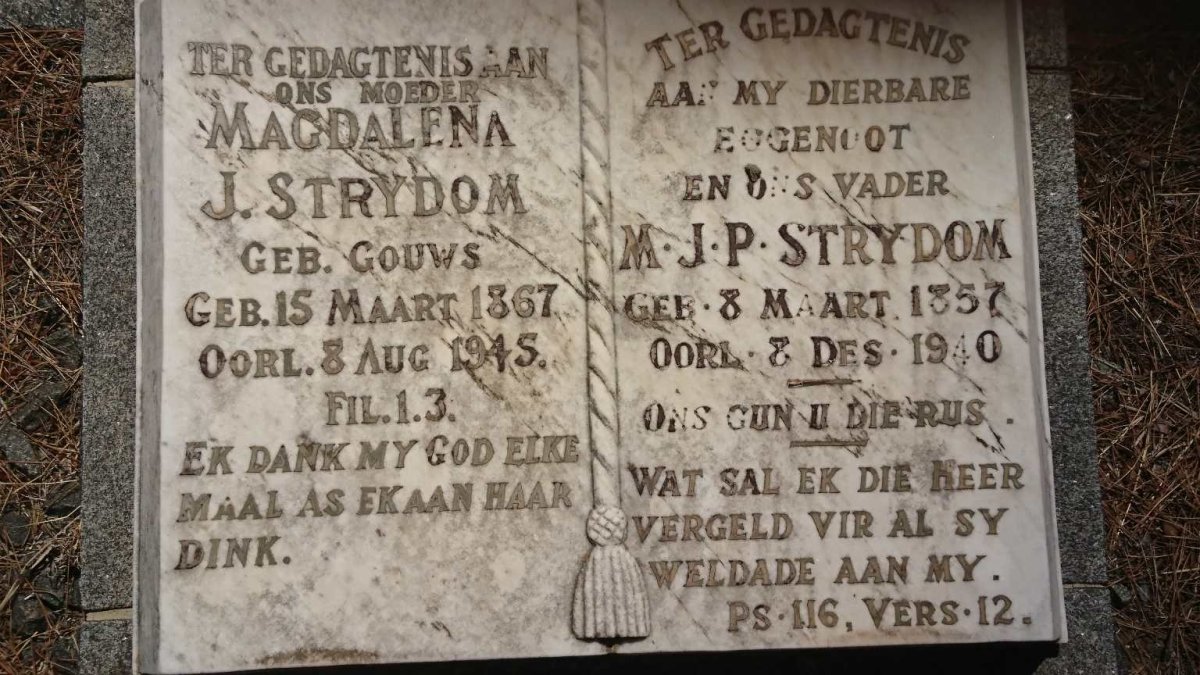 TER GEDAGTENIS AAN
ONS MOEDER
MAGDALENA
J. STRYDOM
GEB. GOUWS
GEB. 15 MAART 1867
OORL. 8 AUG 1945.
FIL. 1.3.
EK DANK MY GOD ELKE
MAAL AS EK AAN HAAR
DINK.
TER GEDAGTENIS
AAN MY DIERBARE
EGGENOOT
EN ONS VADER
M. J. P. STRYDOM
GEB. 8 MAART. 1857
OORL. 8 DES. 1940
ONS GUN U DIE RUS.
WAT SAL EK DIE HEER
VERGELD VIR AL SY
WELDADE AAN MY.
PS. 116, VERS. 12.